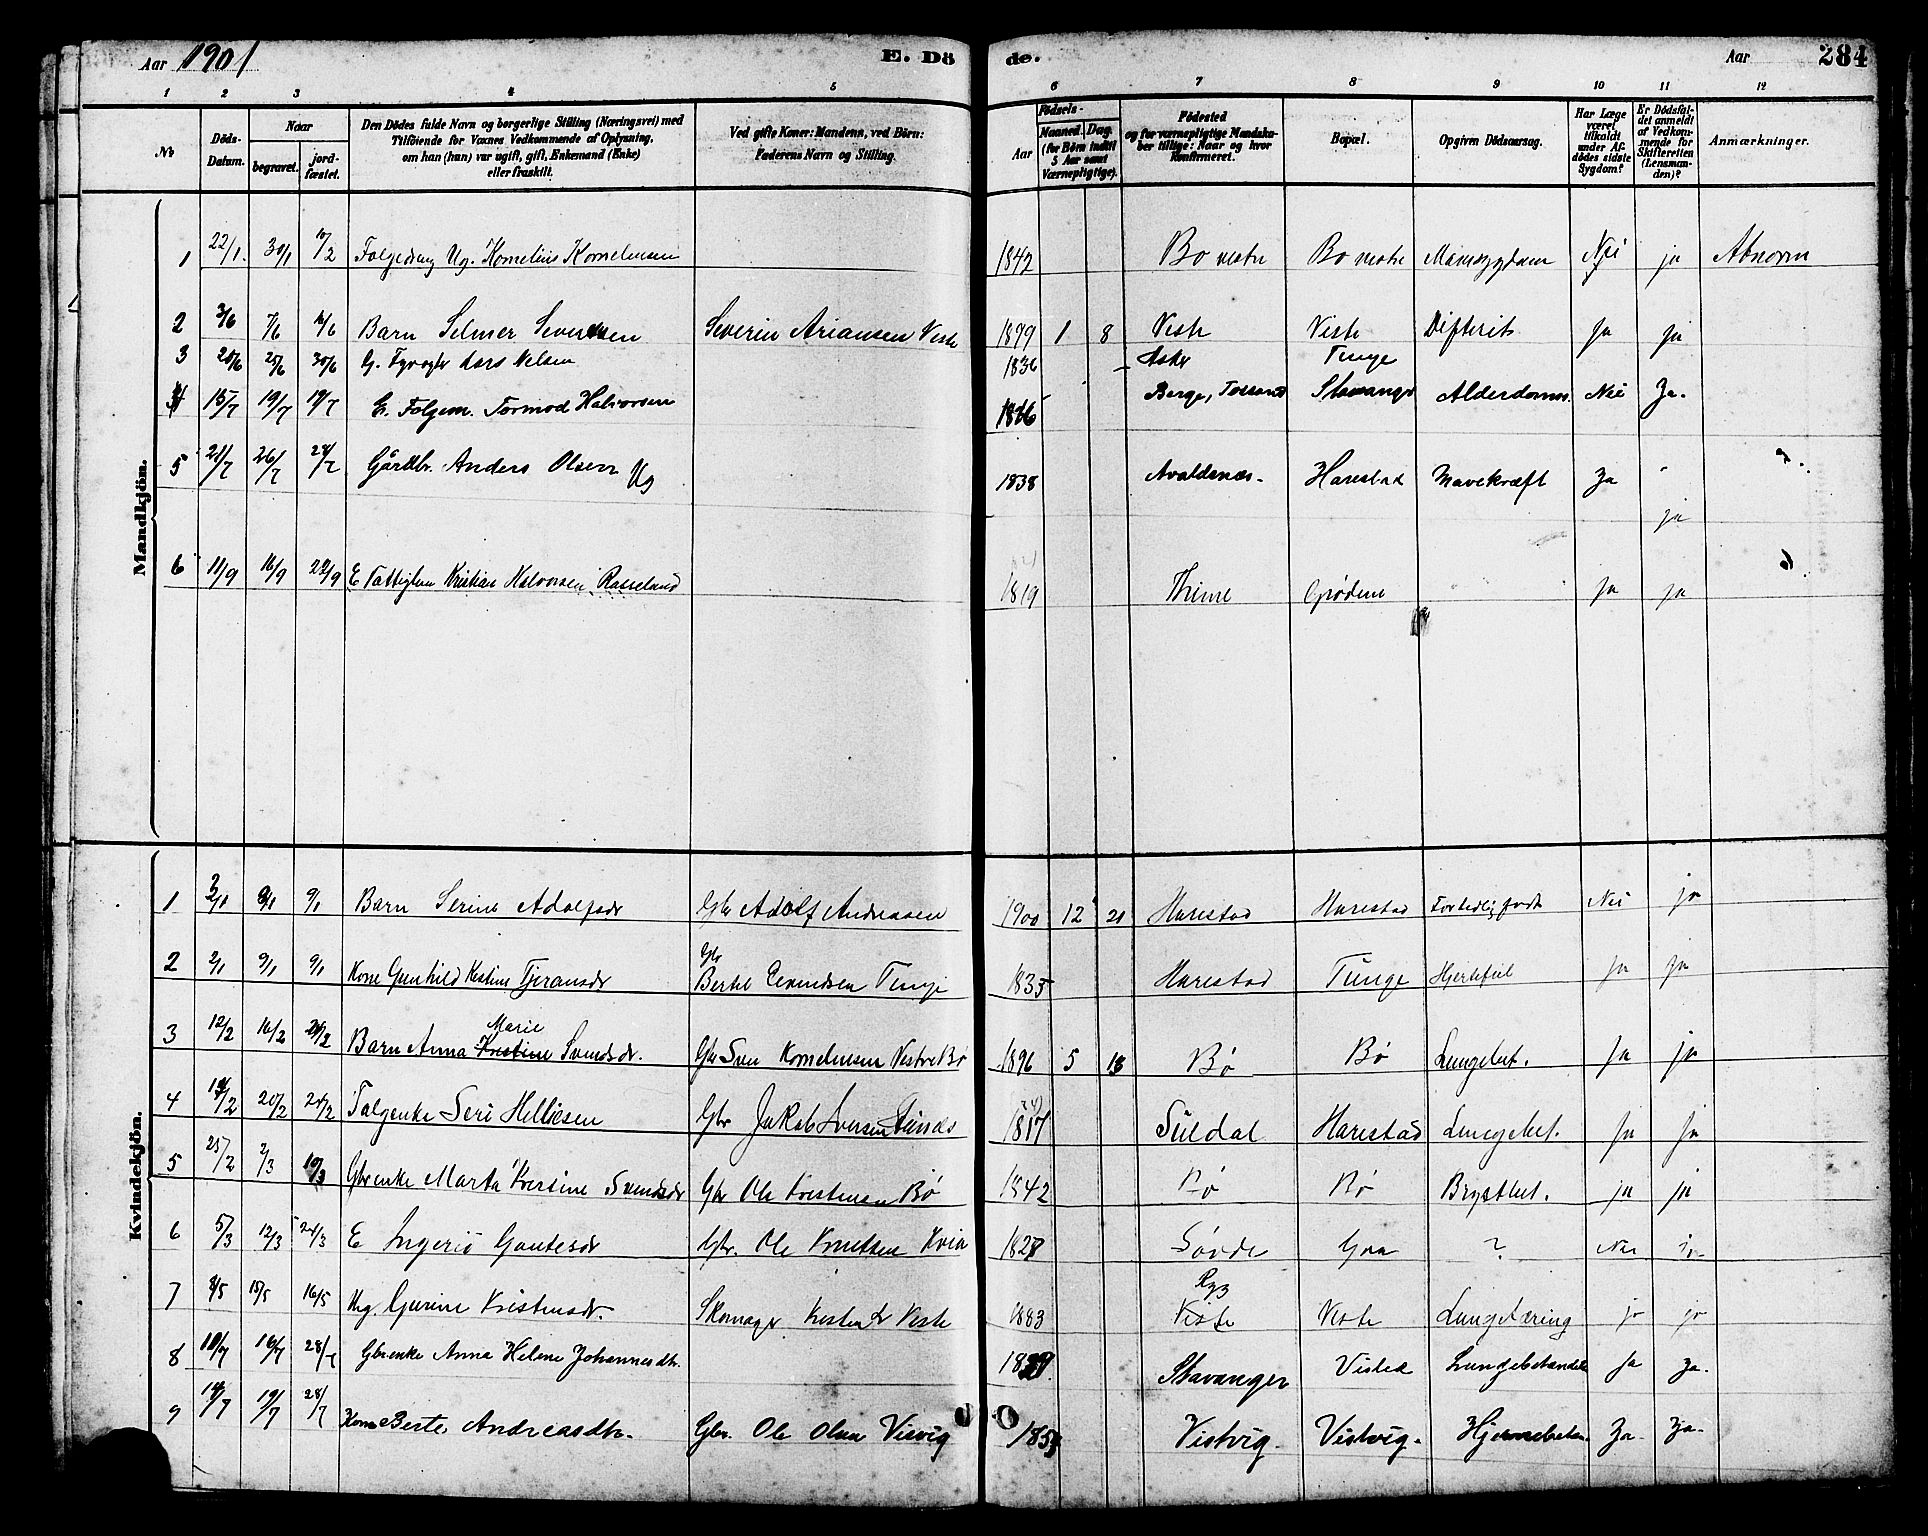 Aar 1901 E. Döde. Aar 284
1 2 3 4 5 6 7 8 9 10 11 12
No
Döds-Datum.
Naar
begravet.
jord-fæstet.
Den Dödes fulde Navn og borgerlige Stilling (Næringsvei) med
Tilföiende for Voxnes Vedkommende af Oplysning,
om han (hun) var ugift, gift, Enkemand (Enke)
eller fraskilt.
Ved gifte Koner: Mandens, ved Börn:
Faderens Navn og Stilling.
Födsels-
Aar
Maaned. Dag.
(for Börn indtil
5 Aar samt
Værnepligtige).
Födested
og for værnepligtige Mandska-
ber tillige: Naar og hvor
konfirmeret.
Bopæl.
Opgiven Dödsaarsag.
Har Læge
været
tilkaldt
under Af-
dödes sidste
Sygdom?
Er Dödsfal-
det anmeldt
af Vedkom-
mende for
Skifteretten
(Lensman-
den)?
Anmærkninger.
Mandkjön.
1 22/1 30/1 10/2 Ug. Kornelius Kornelius­sen 1842 Bo vestre Bo vestre Nei ja Abnorm
2 3/6 7/6 Barn Selmer Seversen Severin Ariansen Viste 1899 1 8 Viste Viste Difterit Ja ja
3 20/6 25/6 30/6 G. Fyrvogter Lars Nelsen 1836 Asker Tunge
4 15/7 19/7 19/7 E. Folgem. Tormod Halvorsen Berge, Stavanger Alderdoms. Nei Ja.
5 21/7 26/7 28/7 Gårdbr. Anders Olsen Ug 1838 Avaldsnæs. Harestad Mavekræft Ja ja
6 11/9 16/9 22/9 E Fattiglem Kristian Halvorsen Rasseland 1819 Thime Grødem ja ja
Kvindekjön.
1 2/1 9/1 9/1 Barn Serine Adolfsdr Gbr Adolf Andreasen 1900 12 21 Harestad Harestad Fortidlig født Nei ja
2 2/1 9/1 9/1 Kone Gunhild Kestine Tjeransdr Gbr Bertel Eivindsen Tunge 1835 Harestad Tunge Hjertefeil ja ja
3 12/2 16/2 24/2 Barn Anna Kristine Marie Svendsdr. Gbr Sven Korneliussen Vestre Bø 1896 5 13 Bø Bø Lungebet. ja ja
4 14/2 20/2 24/2 Folgenke Seri Helliesen Gbr Jakob Iversen 1817 Suldal Harestad Lungebet. ja ja
5 25/2 2/3 10/3 Gbrenke Marta Kristine Svendsdr Gbr Ole Kristensen Bø 1842 Bø Bø Brystbet. ja ja
6 5/3 12/3 24/3 E Ingeri Gautesdr Gbr. Ole Knutsen Kvia 1828 Søvde Goa ? Nei ja
7 8/5 15/5 16/5 Ug. Gurine Kristensdr. Skomager Kristen Viste 1883 Ryg Viste Viste Lungetæring jo jo
8 10/7 16/7 28/7 Gbrenke Anna Helene Johannesdtr. Stavanger Visted Lungebetændelse Ja Ja.
9 14/7 19/7 28/7 Kone Berte Andreasdtr. Gbr. Ole Olsen Visvig 1853 Vistvig. Vistvig. Hjernebetæn. Ja. Ja.